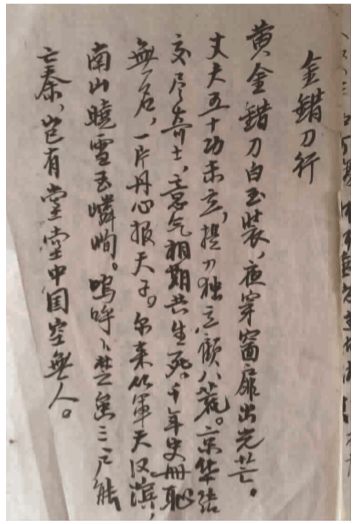 金錯刀行
黄金錯刀白玉装，夜穿窗扉出光芒。
丈夫五十功未立，提刀独立顧八荒。京华结
交尽奇士，意气相期共生死。千年史册耻
無名，一片丹心报天子。尔来从軍天汉滨，
南山曉雪玉嶙峋。嗚呼，楚虽三户能
亡秦，岂有堂堂中国空無人。